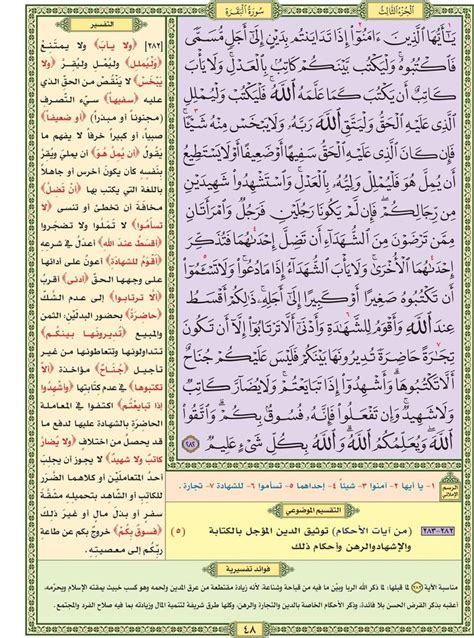 الجزء الثالث
سورة البقرة
يَٰٓأَيُّهَا ٱلَّذِينَ ءَامَنُوٓا۟ إِذَا تَدَايَنتُم بِدَيْنٍ إِلَىٰٓ أَجَلٍ مُّسَمًّى
فَٱكْتُبُوهُ ۚ وَلْيَكْتُب بَّيْنَكُمْ كَاتِبٌۢ بِٱلْعَدْلِ ۚ وَلَا يَأْبَ
كَاتِبٌ أَن يَكْتُبَ كَمَا عَلَّمَهُ ٱللَّهُ ۚ فَلْيَكْتُبْ وَلْيُمْلِلِ
ٱلَّذِى عَلَيْهِ ٱلْحَقُّ وَلْيَتَّقِ ٱللَّهَ رَبَّهُۥ وَلَا يَبْخَسْ مِنْهُ شَيْـًٔا ۚ
فَإِن كَانَ ٱلَّذِى عَلَيْهِ ٱلْحَقُّ سَفِيهًا أَوْ ضَعِيفًا أَوْ لَا يَسْتَطِيعُ
أَن يُمِلَّ هُوَ فَلْيُمْلِلْ وَلِيُّهُۥ بِٱلْعَدْلِ ۚ وَٱسْتَشْهِدُوا۟ شَهِيدَيْنِ
مِن رِّجَالِكُمْ ۖ فَإِن لَّمْ يَكُونَا رَجُلَيْنِ فَرَجُلٌ وَٱمْرَأَتَانِ
مِمَّن تَرْضَوْنَ مِنَ ٱلشُّهَدَآءِ أَن تَضِلَّ إِحْدَىٰهُمَا فَتُذَكِّرَ
إِحْدَىٰهُمَا ٱلْأُخْرَىٰ ۚ وَلَا يَأْبَ ٱلشُّهَدَآءُ إِذَا مَا دُعُوا۟ ۚ وَلَا تَسْـَٔمُوٓا۟
أَن تَكْتُبُوهُ صَغِيرًا أَوْ كَبِيرًا إِلَىٰٓ أَجَلِهِۦ ۚ ذَٰلِكُمْ أَقْسَطُ
عِندَ ٱللَّهِ وَأَقْوَمُ لِلشَّهَٰدَةِ وَأَدْنَىٰٓ أَلَّا تَرْتَابُوٓا۟ ۖ إِلَّآ أَن تَكُونَ
تِجَٰرَةً حَاضِرَةً تُدِيرُونَهَا بَيْنَكُمْ فَلَيْسَ عَلَيْكُمْ جُنَاحٌ
أَلَّا تَكْتُبُوهَا ۗ وَأَشْهِدُوٓا۟ إِذَا تَبَايَعْتُمْ ۚ وَلَا يُضَآرَّ كَاتِبٌ
وَلَا شَهِيدٌ ۚ وَإِن تَفْعَلُوا۟ فَإِنَّهُۥ فُسُوقٌۢ بِكُمْ ۗ وَٱتَّقُوا۟
ٱللَّهَ ۖ وَيُعَلِّمُكُمُ ٱللَّهُ ۗ وَٱللَّهُ بِكُلِّ شَىْءٍ عَلِيمٌ ٢٨٢
الرسم الإملائي
١- يا أيها ٢- آمنوا ٣- شيئاً ٤- إحداهما ٥- تسأموا ٦- للشهادة ٧- تجارة .
التقسيم الموضوعي
٢٨٢-٢٨٣ (من آيات الأحكام) توثيق الدين المؤجل بالكتابة (٥)
والإشهاد والرهن وأحكام ذلك
التفسير
[٢٨٢] ﴿ولا يأبَ﴾ ولا يمتنعْ
﴿وَلْيُملل﴾ وليُمْلِ وليُقر ﴿ولا
يَبْخَسْ﴾ لا يَنْقُصْ من الحق الذي
عليه ﴿سفيهاً﴾ سيّء التصرف
(مجنوناً أو مبذراً) ﴿أو ضعيفاً﴾
صبياً، أو كبيراً خرفاً لا يفهم ما
يقول ﴿أن يُملّ هُوَ﴾ أن يملي ويُقرّ
بنفسه كأن يكون أخرس أو جاهلاً
باللغة التي يكتب بها ﴿أنْ تَضلّ﴾
مخافة أن تخطئ أو تنسى ﴿لا
تسأموا﴾ لا تَمَلّوا ولا تضجروا
﴿أقسَطُ عندَ الله﴾ أعدلُ في شرعه
﴿أقْوَمُ للشهادةِ﴾ أعونُ على أدائها
على وجهها الحق ﴿أدنى﴾ أقربُ
﴿ألا ترتابوا﴾ إلى عدم الشكّ
﴿حاضرَةً﴾ بحضور البدلين: الثمن
والمبيع ﴿تُديرونها بينكُم﴾
تتداولونها وتتعاطونها من غير
تأجيل ﴿جُناحٌ﴾ مؤاخذة ﴿ألا
تكتبوها﴾ في عدم كتابتها ﴿وأشهدوا
إذا تبايَعْتُم﴾ اكتفوا في المعاملة
الحاضرة بالشهادة عليها لدفع ما
قد يحصل من اختلاف ﴿ولا يُضارّ
كاتبٌ ولا شهيدٌ﴾ لا يجوز أن يجلب
أحد المتعاملَيْن أو كلاهما الضرر
للكاتب أو الشاهد بتحميله مشقّة
سفر أو بذل مال أو غير ذلك
﴿فسوقٌ بكُمْ﴾ خروجٌ بكم عن طاعة
ربّكم إلى معصيته.
فوائد تفسيرية
مناسبة الآية ٢٨٢ لما قبلها، لما ذكر الله الربا وبيّن ما فيه من قباحة وشناعة، لأنه زيادة مقتطعة من عرق المدين ولحمه وهو كسب خبيث يمقته الإسلام ويحرّمه،
أعقبه بذكر القرض الحسن بلا فائدة، وذكر الأحكام الخاصة بالدين والتجارة والرهن، وكلها طرق شريفة لتنمية المال وزيادته بما فيه صلاح الفرد والمجتمع.
٤٨